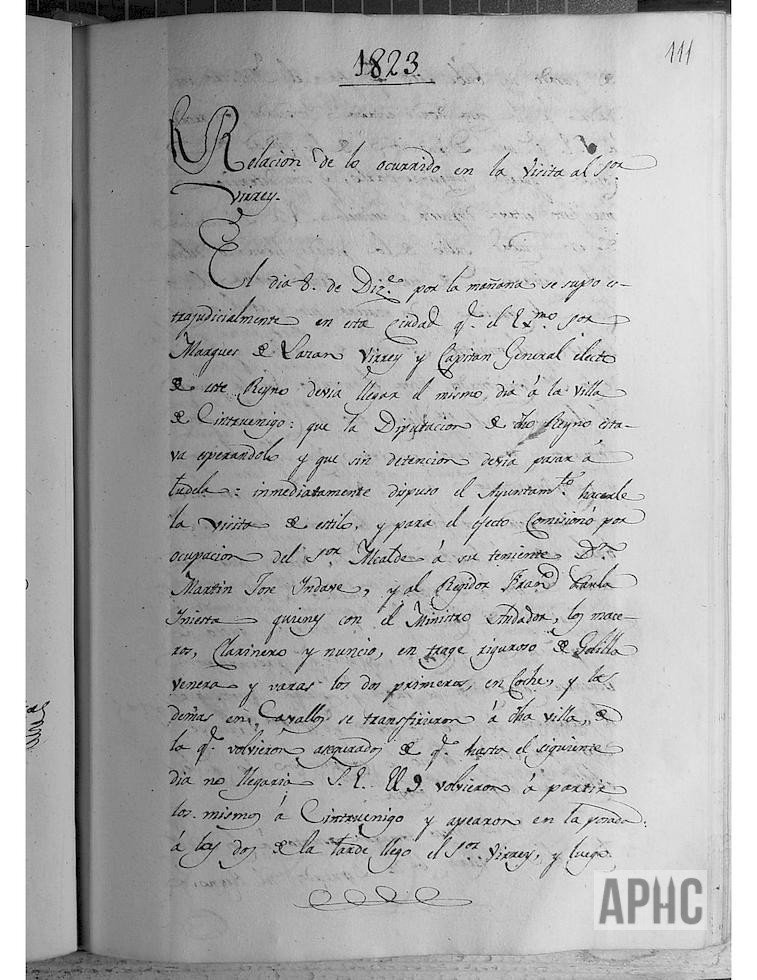 1823.
111
Relacion de lo ocurrido en la visita al Sor
Virrey.
El dia 8. de Diz.e por la mañana se supo es-
trajudicialmente en esta Ciudad q.e el Exmo. Sor
Marques de Lazan Virrey y Capitan General electo
de este Reyno devia llegar el mismo dia á la villa
de Cintruenigo: que la Diputacion de dho Reyno esta-
va esperandole y que sin detencion devia pasar á
tudela: inmediatamente dispuso el Ayuntam.to hacerle
la visita de estilo, y para el efecto comisionó por
ocupacion del Sor. Alcalde á su teniente D.n
Martin Jose Yndave, y al Regidor Fran.co Paula
Ynierta quienes con el Ministro Andador, los mace-
ros, Clarinero y nuncio, en trage riguroso de Golilla
venera y varas los dos primeros, en Coche, y los
demas en Cavallos se transfirieron á dha villa, de
la q.e volvieron asegurados de q.e hasta el siguiente
dia no llegaria S. E. El 9. volvieron á partir
los mismos á Cintruenigo y apearon en la posada:
á las dos de la tarde llego el Sor. Virrey, y luego
APHC